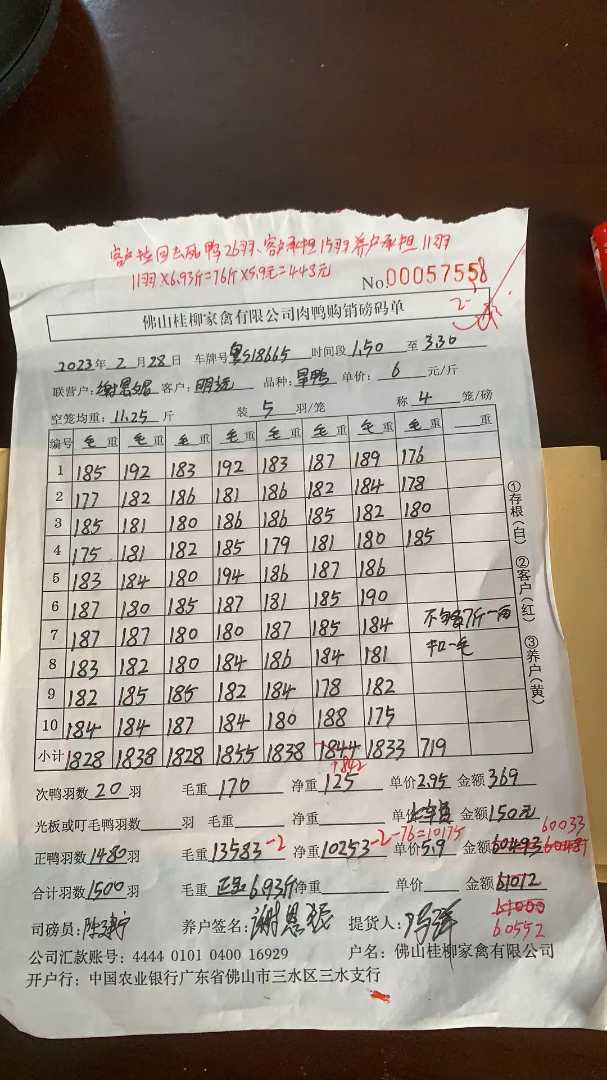 客户拉回去死鸭26羽、客户承担15羽养户承担11羽
11羽×6.93斤=76斤×5.9元=443元
No.00057558
佛山桂柳家禽有限公司肉鸭购销磅码单
2023年2月28日 车牌号粤S18665 时间段1,50至3,30
联营户: 客户:明远 品种:旱鸭 单价:6元/斤
空笼均重:11.25斤 装5羽/笼 称4笼/磅
编号 毛重 毛重 毛重 毛重 毛重 毛重 毛重 毛重 重
1 185 192 183 192 183 187 189 176
2 177 182 186 181 186 182 184 178
3 185 181 180 186 186 185 182 180
4 175 181 182 185 179 181 180 185
5 183 184 180 194 186 187 186
6 187 180 185 187 181 185 190
7 187 187 180 180 187 185 184 不够7斤一两
8 183 182 180 184 186 184 181 扣一毛
9 182 185 185 182 184 178 182
10 184 184 187 184 180 188 175
小计 1828 1838 1828 1855 1838 1844 1833 719
1842
次鸭羽数20羽 毛重170 净重125 单价2.95 金额369
光板或叮毛鸭羽数 羽 毛重 净重 单价 金额150元
60033
正鸭羽数1480羽 毛重13583-2 净重10253-2-76=10175 单价5.9 金额60493 60481
合计羽数1500羽 毛重正品6.93斤 净重 单价 金额61012
61000
司磅员: 养户签名:谢恩 提货人:
60552
公司汇款账号:4444 0101 0400 16929 户名:佛山桂柳家禽有限公司
开户行:中国农业银行广东省佛山市三水区三水支行
①存根(白) ②客户(红) ③养户(黄)